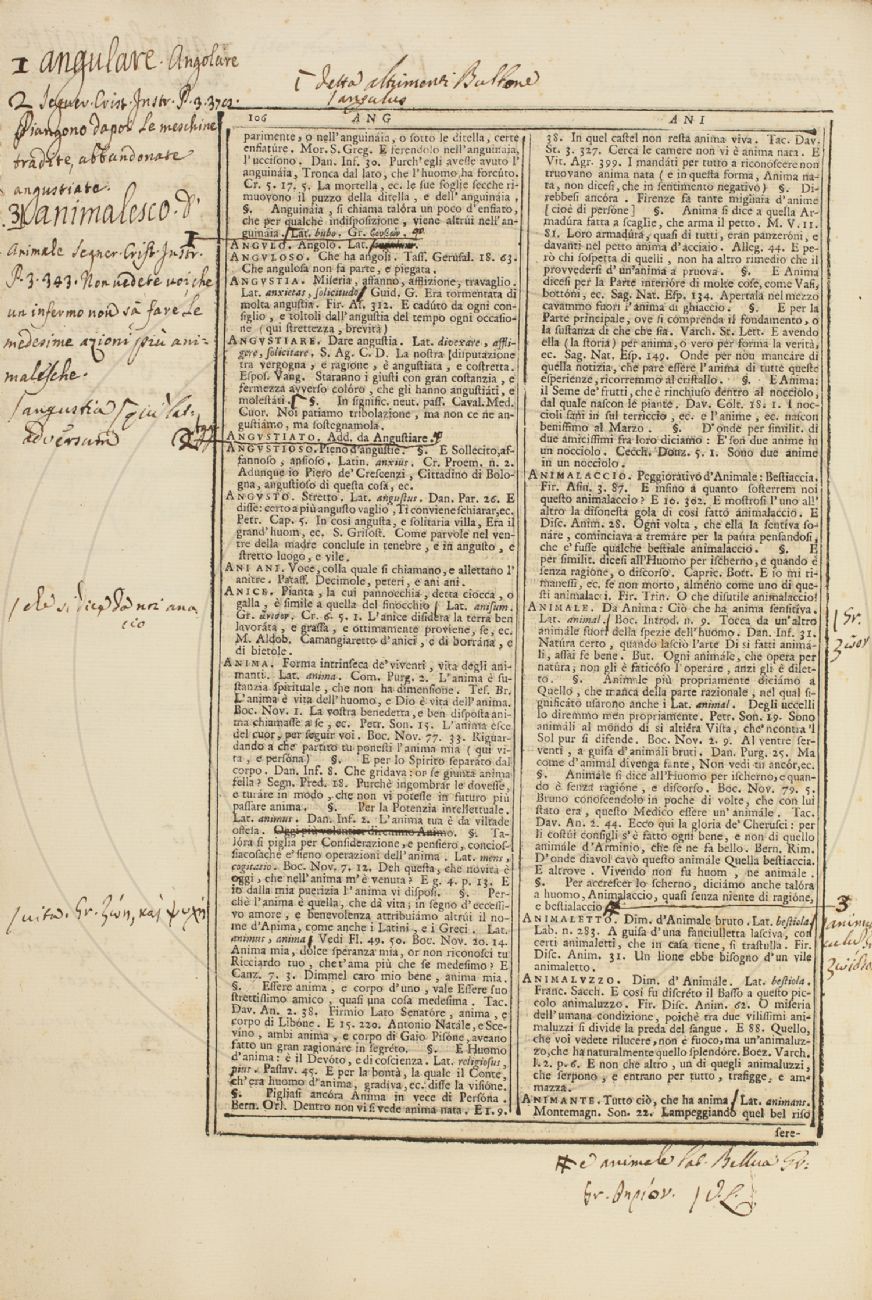 1 angulare. Angolare
2 Segner. Crist. Instr. P. 3.
Piangono dapoi le meschine
tradite, abbandonate
angustiate.
3 animalesco. d'
Animale Segner. Crist. Instr.
P. 3. 343. Non vedete voi che
un infermo non sà fare le
medesime azioni più ani-
malesche.
angustia più lat.
che si dice da noi ana
cio
vita. Gr. ζωή, καὶ ψυχή
detta altrimenti Bubbone
angulus
106 ANG
parimente, o nell'anguináia, o sotto le ditella, certe
enfiature. Mor. S. Greg. E ferendolo nell'anguinaja,
l'uccisono. Dan. Inf. 30. Purch'egli avesse avuto l'
anguináia, Tronca dal lato, che l'huomo ha forcúto.
Cr. 5. 17. 5. La mortella, ec. le sue foglie secche ri-
muovono il puzzo della ditella, e dell'anguináia.
§. Anguináia, si chiama talóra un poco d'enfiato,
che per qualche indisposizione, viene altrúi nell'an-
guináia. Lat. bubo. Gr.
ANGULO. Angolo. Lat.
ANGULOSO. Che ha angoli. Tass. Gerusal. 18. 63.
Che angulosa non fa parte, e piegata.
ANGUSTIA. Miseria, affanno, afflizione, travaglio.
Lat. anxietas, solicitudo Guid. G. Era tormentata di
molta angustia. Fir. As. 312. E caduto da ogni con-
siglio, e toltoli dall'angustia del tempo ogni occasio-
ne (qui strettezza, brevità)
ANGUSTIARE. Dare angustia. Lat. divexare, affli-
gere, solicitare. S. Ag. C. D. La nostra [disputazione
tra vergogna, e ragione, è angustiata, e costretta.
Espos. Vang. Staranno i giusti con gran costanzia, e
fermezza avverso colóro, che gli hanno angustiáti, e
molestáti. §. In signific. neut. pass. Caval. Med.
Cuor. Noi patiamo tribolazione, ma non ce ne an-
gustiámo, ma sostegnamola.
ANGUSTIATO. Add. da Angustiare.
ANGUSTIOSO. Pieno d'angustie. §. E Sollecito, af-
fannoso, ansioso. Latin. anxius. Cr. Proem. n. 2.
Adunque io Piero de' Crescenzi, Cittadino di Bolo-
gna, angustioso di questa cosa, ec.
ANGUSTO. Stretto. Lat. angustus. Dan. Par. 26. E
disse: certo a più angusto vaglio, Ti conviene schiarar, ec.
Petr. Cap. 5. In così angusta, e solitaria villa, Era il
grand'huom, ec. S. Grisost. Come parvole nel ven-
tre della madre concluse in tenebre, e in angusto, e
stretto luogo, e vile.
ANI ANI. Voce, colla quale si chiamano, e allettano l'
anitre. Pataff. Decimole, peteri, e ani ani.
ANICE. Pianta, la cui pannocchia, detta ciocca, o
galla, è simile a quella del finocchio Lat. anisum.
Gr. Cr. 6. 5. 1. L'anice disidera la terra ben
lavoráta, e grassa, e ottimamente proviene, se, ec.
M. Aldob. Camangiaretto d'anici, e di borrána, e
di bietole.
ANIMA. Forma intrinseca de' viventi, vita degli ani-
manti. Lat. anima. Com. Purg. 2. L'anima è su-
stanzia spirituale, che non ha dimensione. Tes. Br.
L'anima è vita dell'huomo, e Dio è vita dell'anima.
Boc. Nov. 1. La vostra benedetta, e ben disposta ani-
ma chiamasse a se, ec. Petr. Son. 15. L'anima esce
del cuor, per seguir voi. Boc. Nov. 77. 33. Riguar-
dando a che partito tu ponesti l'anima mia (qui vi-
ta, e persóna) §. E per lo Spirito separato dal
corpo. Dan. Inf. 8. Che gridava: or se giunta anima
fella? Segn. Pred. 18. Purchè ingombrar le dovesse,
e turáre in modo, che non vi potesse in futuro più
passare anima. §. Per la Potenzia intellettuale.
Lat. animus. Dan. Inf. 2. L'anima tua è da viltade
offesa. Oggi più volentier diremmo Animo. §. Ta-
lóra si piglia per Considerazione, e pensiero, concios-
siacosachè e' sieno operazioni dell'anima. Lat. mens,
cogitatio. Boc. Nov. 7. 12. Deh questa, che novità è
oggi, che nell'anima m'è venuta? E g. 4. p. 13. E
io dalla mia puerizia l'anima vi disposi. §. Per-
chè l'anima è quella, che dà vita; in segno d'eccessi-
vo amore, e benevolenza attribuiámo altrúi il no-
me d'Anima, come anche i Latini, e i Greci. Lat.
animus, anima Vedi Fl. 49. 50. Boc. Nov. 20. 14.
Anima mia, dolce speranza mia, or non riconosci tu
Ricciardo tuo, che t'ama più che se medesimo? E
Canz. 7. 3. Dimmel caro mio bene, anima mia.
§. Essere anima, e corpo d'uno, vale Essere suo
strettissimo amico, quasi una cosa medesima. Tac.
Dav. An. 2. 38. Firmio Lato Senatóre, anima, e
corpo di Libóne. E 15. 220. Antonio Natále, e Sce-
vino, ambi anima, e corpo di Gaio Pisóne, aveano
fatto un gran ragionáre in segréto. §. E Huomo
d'anima: è il Devóto, e di coscienza. Lat. religiosus,
pius. Passav. 45. E per la bontà, la quale il Conte,
ch'era huomo d'anima, gradiva, ec. disse la visióne.
§. Pigliasi ancóra Anima in vece di Persóna.
Bern. Orl. Dentro non vi si vede anima nata. E 1. 9.
ANI
38. In quel castel non resta anima viva. Tac. Dav.
St. 3. 327. Cerca le camere non vi è anima nata. E
Vit. Agr. 399. I mandáti per tutto a riconoscere non
truovano anima nata (e in questa forma, Anima na-
ta, non dicesi, che in sentimento negativo) §. Di-
rebbesi ancóra. Firenze fa tante migliaia d'anime
[cioè di persóne] §. Anima si dice a quella Ar-
madúra fatta a scaglie, che arma il petto. M. V. 11.
81. Loro armadúra, quasi di tutti, eran panzeróni, e
davanti nel petto anima d'acciaio. Alleg. 44. E pe-
rò chi sospetta di quelli, non ha altro rimedio che il
provvedersi d'un'anima a pruova. §. E Anima
dicesi per la Parte interióre di molte cose, come Vasi,
bottóni, ec. Sag. Nat. Esp. 134. Apertala nel mezzo
cavammo fuori l'ánima di ghiaccio. §. E per la
Parte principale, ove si comprenda il fondamento, o
la sustanza di che che sia. Varch. St. Lett. E avendo
ella (la storia) per anima, o vero per forma la verità,
ec. Sag. Nat. Esp. 149. Onde per non mancáre di
quella notizia, che pare essere l'anima di tutte queste
esperienze, ricorremmo al cristallo. §. E Anima:
il Seme de' frutti, che è rinchiuso dentro al nocciolo,
dal quale nascon le piante. Dav. Colt. 181. I noc-
cioli sani in sul terriccio, ec. e l'anime, ec. nascon
benissimo al Marzo. §. D'onde per similit. di
due amicissimi fra loro diciamo: E' son due anime in
un nocciolo. Cecch. Donz. 5. 1. Sono due anime
in un nocciolo.
ANIMALACCIO. Peggiorativo d'Animale: Bestiaccia.
Fir. Asin. 3. 87. E insino a quanto sosterrem noi
questo animalaccio? E 10. 302. E mostrosi l'uno all'
altro la disonesta gola di così fatto animalaccio. E
Disc. Anim. 28. Ogni volta, che ella la sentíva so-
náre, cominciava a tremáre per la paura pensandosi,
che e' fusse qualche bestiale animalaccio. §. E
per similit. dicesi all'Huomo per ischerno, e quando è
senza ragióne, o discorso. Capric. Bott. E io mi ri-
manessi, ec. se non morto, alméno come uno di que-
sti animalacci. Fir. Trin. O che disutile animalaccio!
ANIMALE. Da Anima: Ciò che ha anima sensitiva.
Lat. animal. Boc. Introd. n. 9. Tocca da un'altro
animále fuori della spezie dell'huomo. Dan. Inf. 31.
Natúra certo, quando lasciò l'arte Di sì fatti animá-
li, assai fe bene. But. Ogni animále, che opera per
natúra; non gli è faticóso l'operáre, anzi gli è dilet-
to. §. Animále più propriamente diciámo a
Quello, che manca della parte razionale, nel qual si-
gnificáto usárono anche i Lat. animal. Degli uccelli
lo diremmo men propriamente. Petr. Son. 19. Sono
animáli al mondo di sì altiéra Vista, che'ncontra'l
Sol pur si difende. Boc. Nov. 2. 9. Al ventre ser-
venti, a guisa d'animáli bruti. Dan. Purg. 25. Ma
come d'animál divenga fante, Non vedi tu ancór, ec.
§. Animále si dice all'Huomo per ischerno, e quan-
do è senza ragióne, e discorso. Boc. Nov. 79. 5.
Bruno conoscendolo in poche di volte, che con lui
stato era, questo Medico essere un'animále. Tac.
Dav. An. 2. 44. Ecco qui la gloria de' Cherusci: per
li costúi consigli s'è fatto ogni bene, e non di quello
animále d'Arminio, che se ne fa bello. Bern. Rim.
D'onde diavol cavò questo animále Quella bestiaccia.
E altrove. Vivendo non fu huom, ne animále.
§. Per accrescer lo scherno, diciámo anche talóra
a huomo, Animalaccio, quasi senza niente di ragióne,
e bestialaccio
ANIMALETTO. Dim. d'Animale bruto. Lat. bestiola
Lab. n. 283. A guisa d'una fanciulletta lasciva, con
certi animaletti, che in casa tiene, si trastulla. Fir.
Disc. Anim. 31. Un lione ebbe bisogno d'un vile
animaletto.
ANIMALUZZO. Dim. d'Animále. Lat. bestiola.
Franc. Sacch. E così fu discréto il Basso a questo pic-
colo animaluzzo. Fir. Disc. Anim. 62. O miseria
dell'umana condizione, poichè tra due vilissimi ani-
maluzzi si divide la preda del sangue. E 88. Quello,
che voi vedete rilucere, non è fuoco, ma un'animaluz-
zo, che ha naturalmente quello splendóre. Boez. Varch.
l. 2. p. 6. E non che altro, un di quegli animaluzzi,
che serpono, e entrano per tutto, trafigge, e am-
mazza.
ANIMANTE. Tutto ciò, che ha anima Lat. animans.
Montemagn. Son. 22. Lampeggiando quel bel riso
sere-
Gr.
ζῶον
3
e animale Lat. Bellua Gr.
Gr. θηρίον.